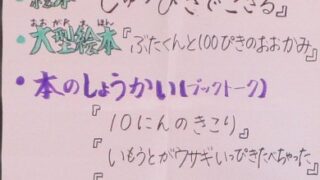 しゅっぱつでござる』
おおがたえほん
・大型絵本『ぶたくんと100ぴきのおおかみ』
・本のしょうかい(ブックトーク)
『10にんのきこり』
『いもうとがウサギいっぴきたべちゃった』